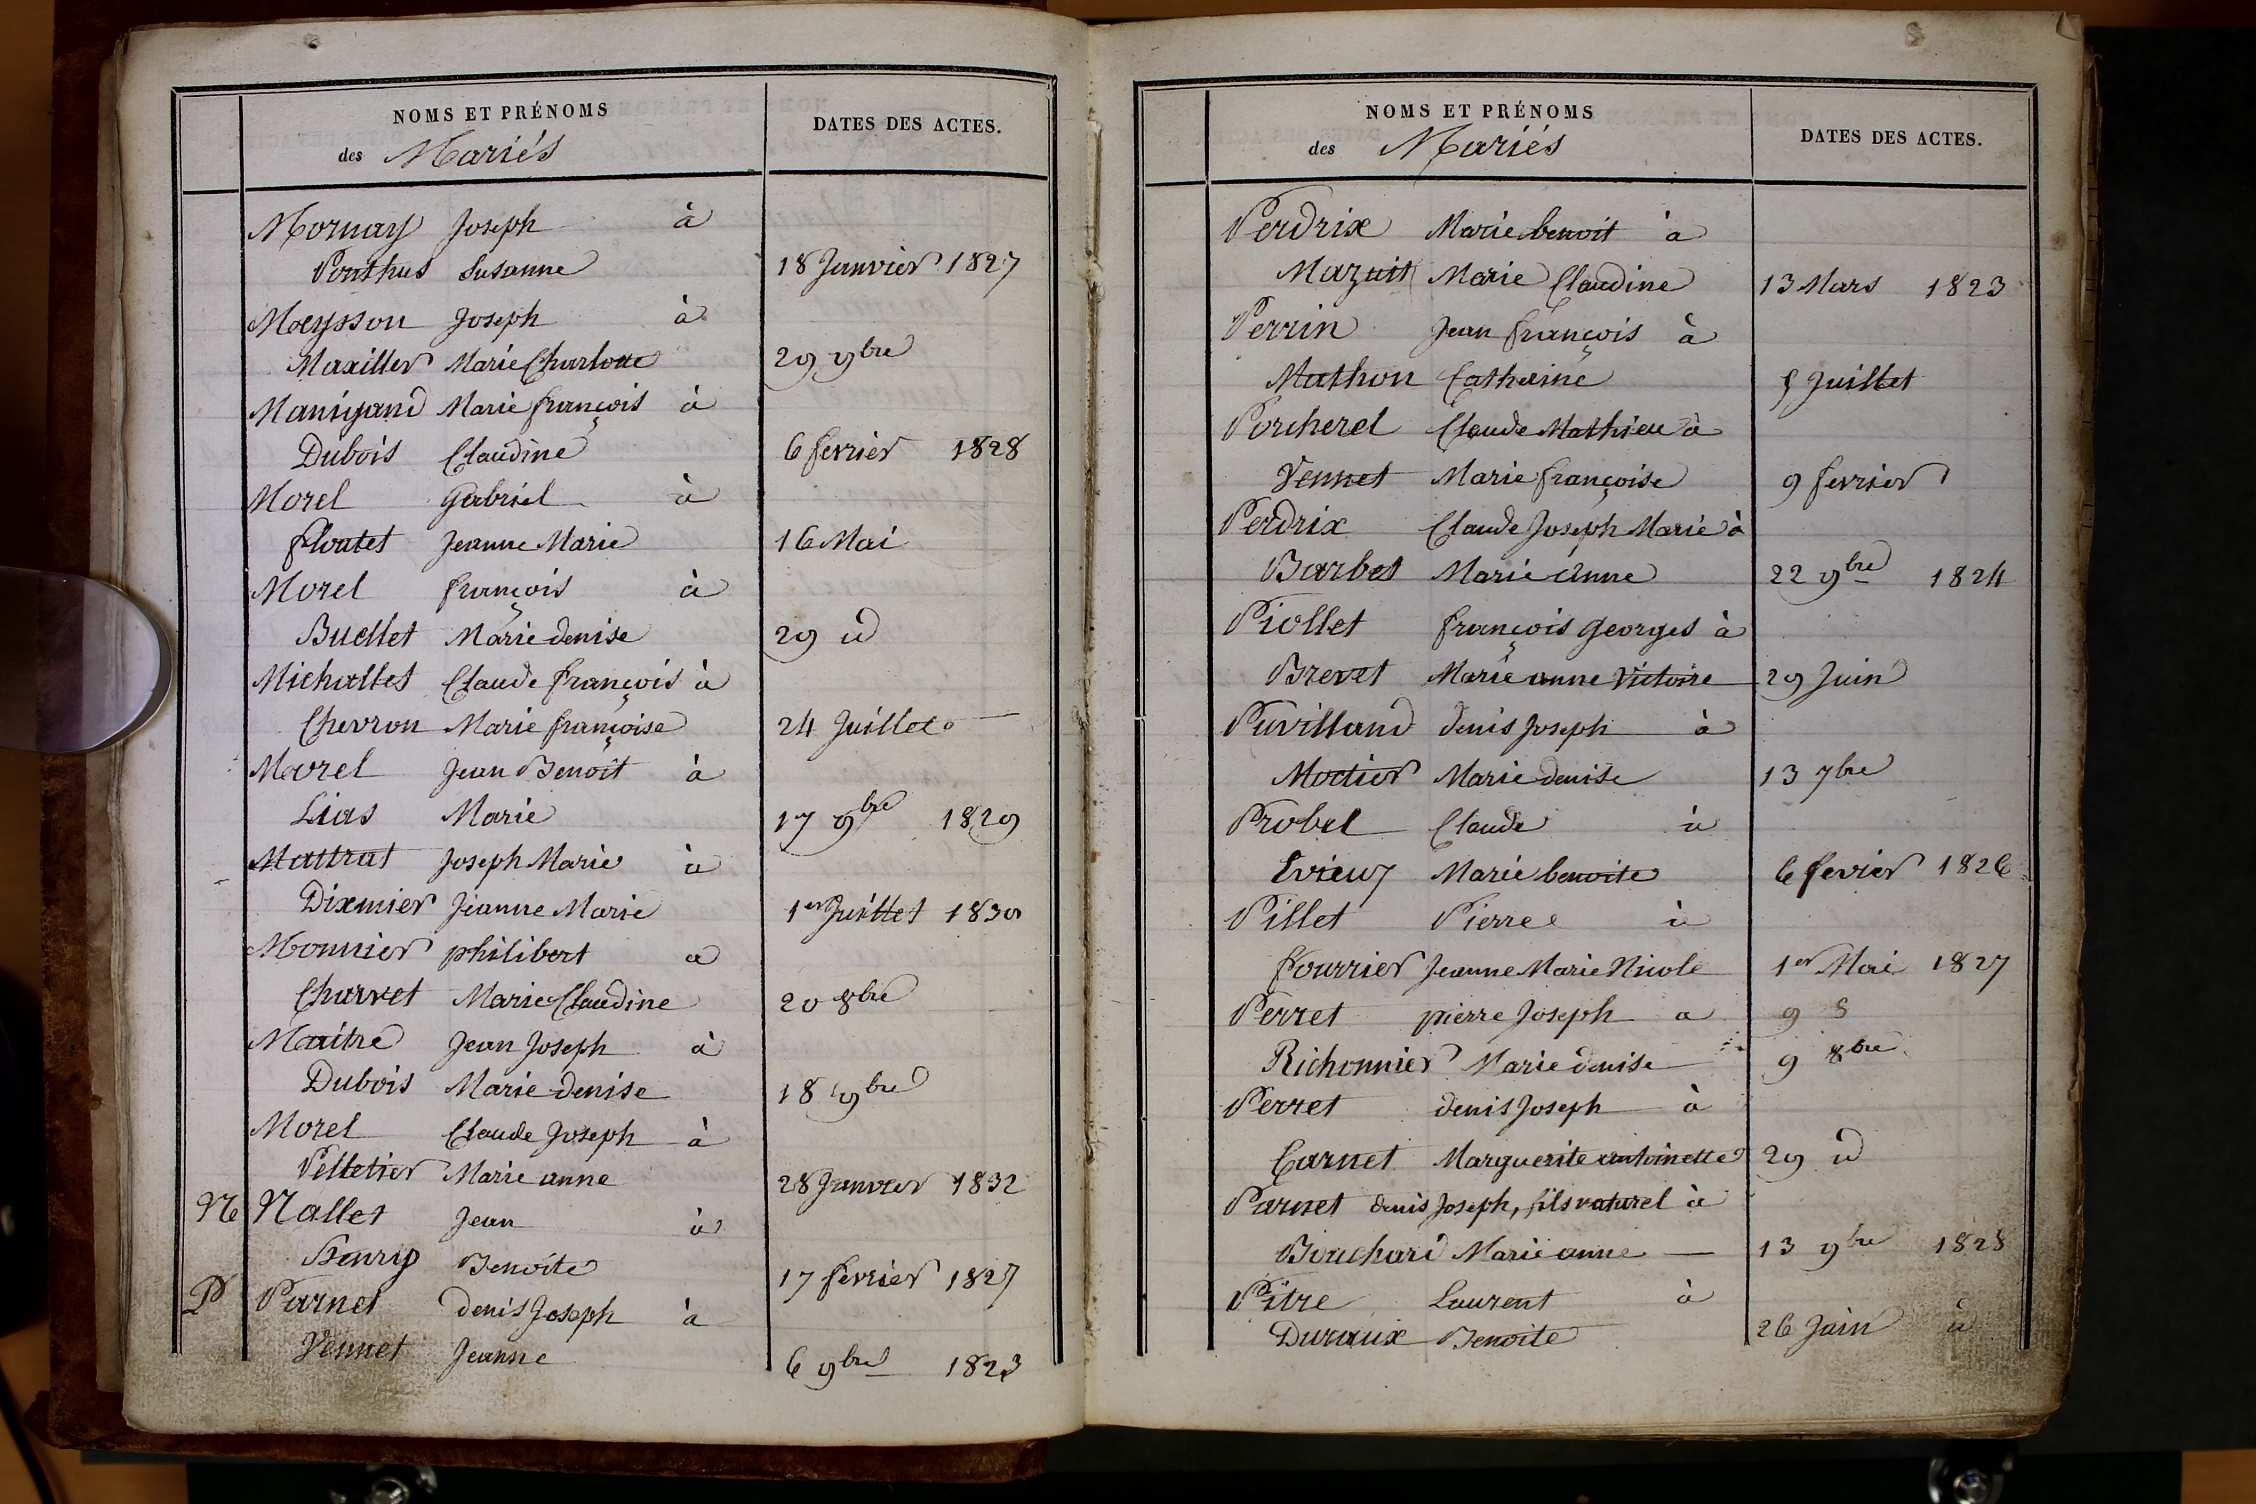 NOMS ET PRÉNOMS
des Mariés
DATES DES ACTES.
Mornay Joseph à
Ponthus Susanne 18 Janvier 1827
Moeysson Joseph à
Maxiller Marie Charlotte 29 9bre
Manigand Marie françois à
Dubois Claudine 6 fevrier 1828
Morel Gabriel à
floutet Jeanne Marie 16 Mai
Morel françois à
Buellet Marie denise 29 id
Michallet Claude françois à
Chevron Marie françoise 24 Juillet
Morel Jean Benoit à
Lias Marie 17 9bre 1829
Mattrat Joseph Marie à
Dixmier Jeanne Marie 1er Juillet 1830
Monnier philibert a
Charvet Marie Claudine 20 8bre
Maitre Jean Joseph à
Dubois Marie denise 18 9bre
Morel Claude Joseph à
Pelletier Marie anne 28 Janvier 1832
N Nallet Jean à
Henry Benoite 17 fevrier 1827
P Parnet denis Joseph à
Vennet Jeanne 6 9bre 1823
NOMS ET PRÉNOMS
des Mariés
DATES DES ACTES.
Perdrix Marie benoit à
Mazuit Marie Claudine 13 Mars 1823
Perrin Jean françois à
Mathon Catherine 5 Juillet
Porcherel Claude Mathieu à
Vennet Marie françoise 9 fevrier
Perdrix Claude Joseph Marie à
Barbet Marie Anne 22 9bre 1824
Piollet françois Georges à
Brevet Marie anne Victoire 29 Juin
Puvilland denis Joseph à
Moctier Marie denise 13 7bre
Probel Claude à
Evieux Marie benoite 6 fevier 1826
Pillet Pierre à
fourrier Jeanne Marie Nicole 1er Mai 1827
Perret pierre Joseph a 9 8
Richonnier Marie denise 9 8bre
Perret denis Joseph à
Carnet Marguerite antoinette 29 id
Parnet denis Joseph, fils naturel à
Bouchard Marie anne 13 9bre 1828
Pitre Laurent à
Duraux Benoite 26 Juin id